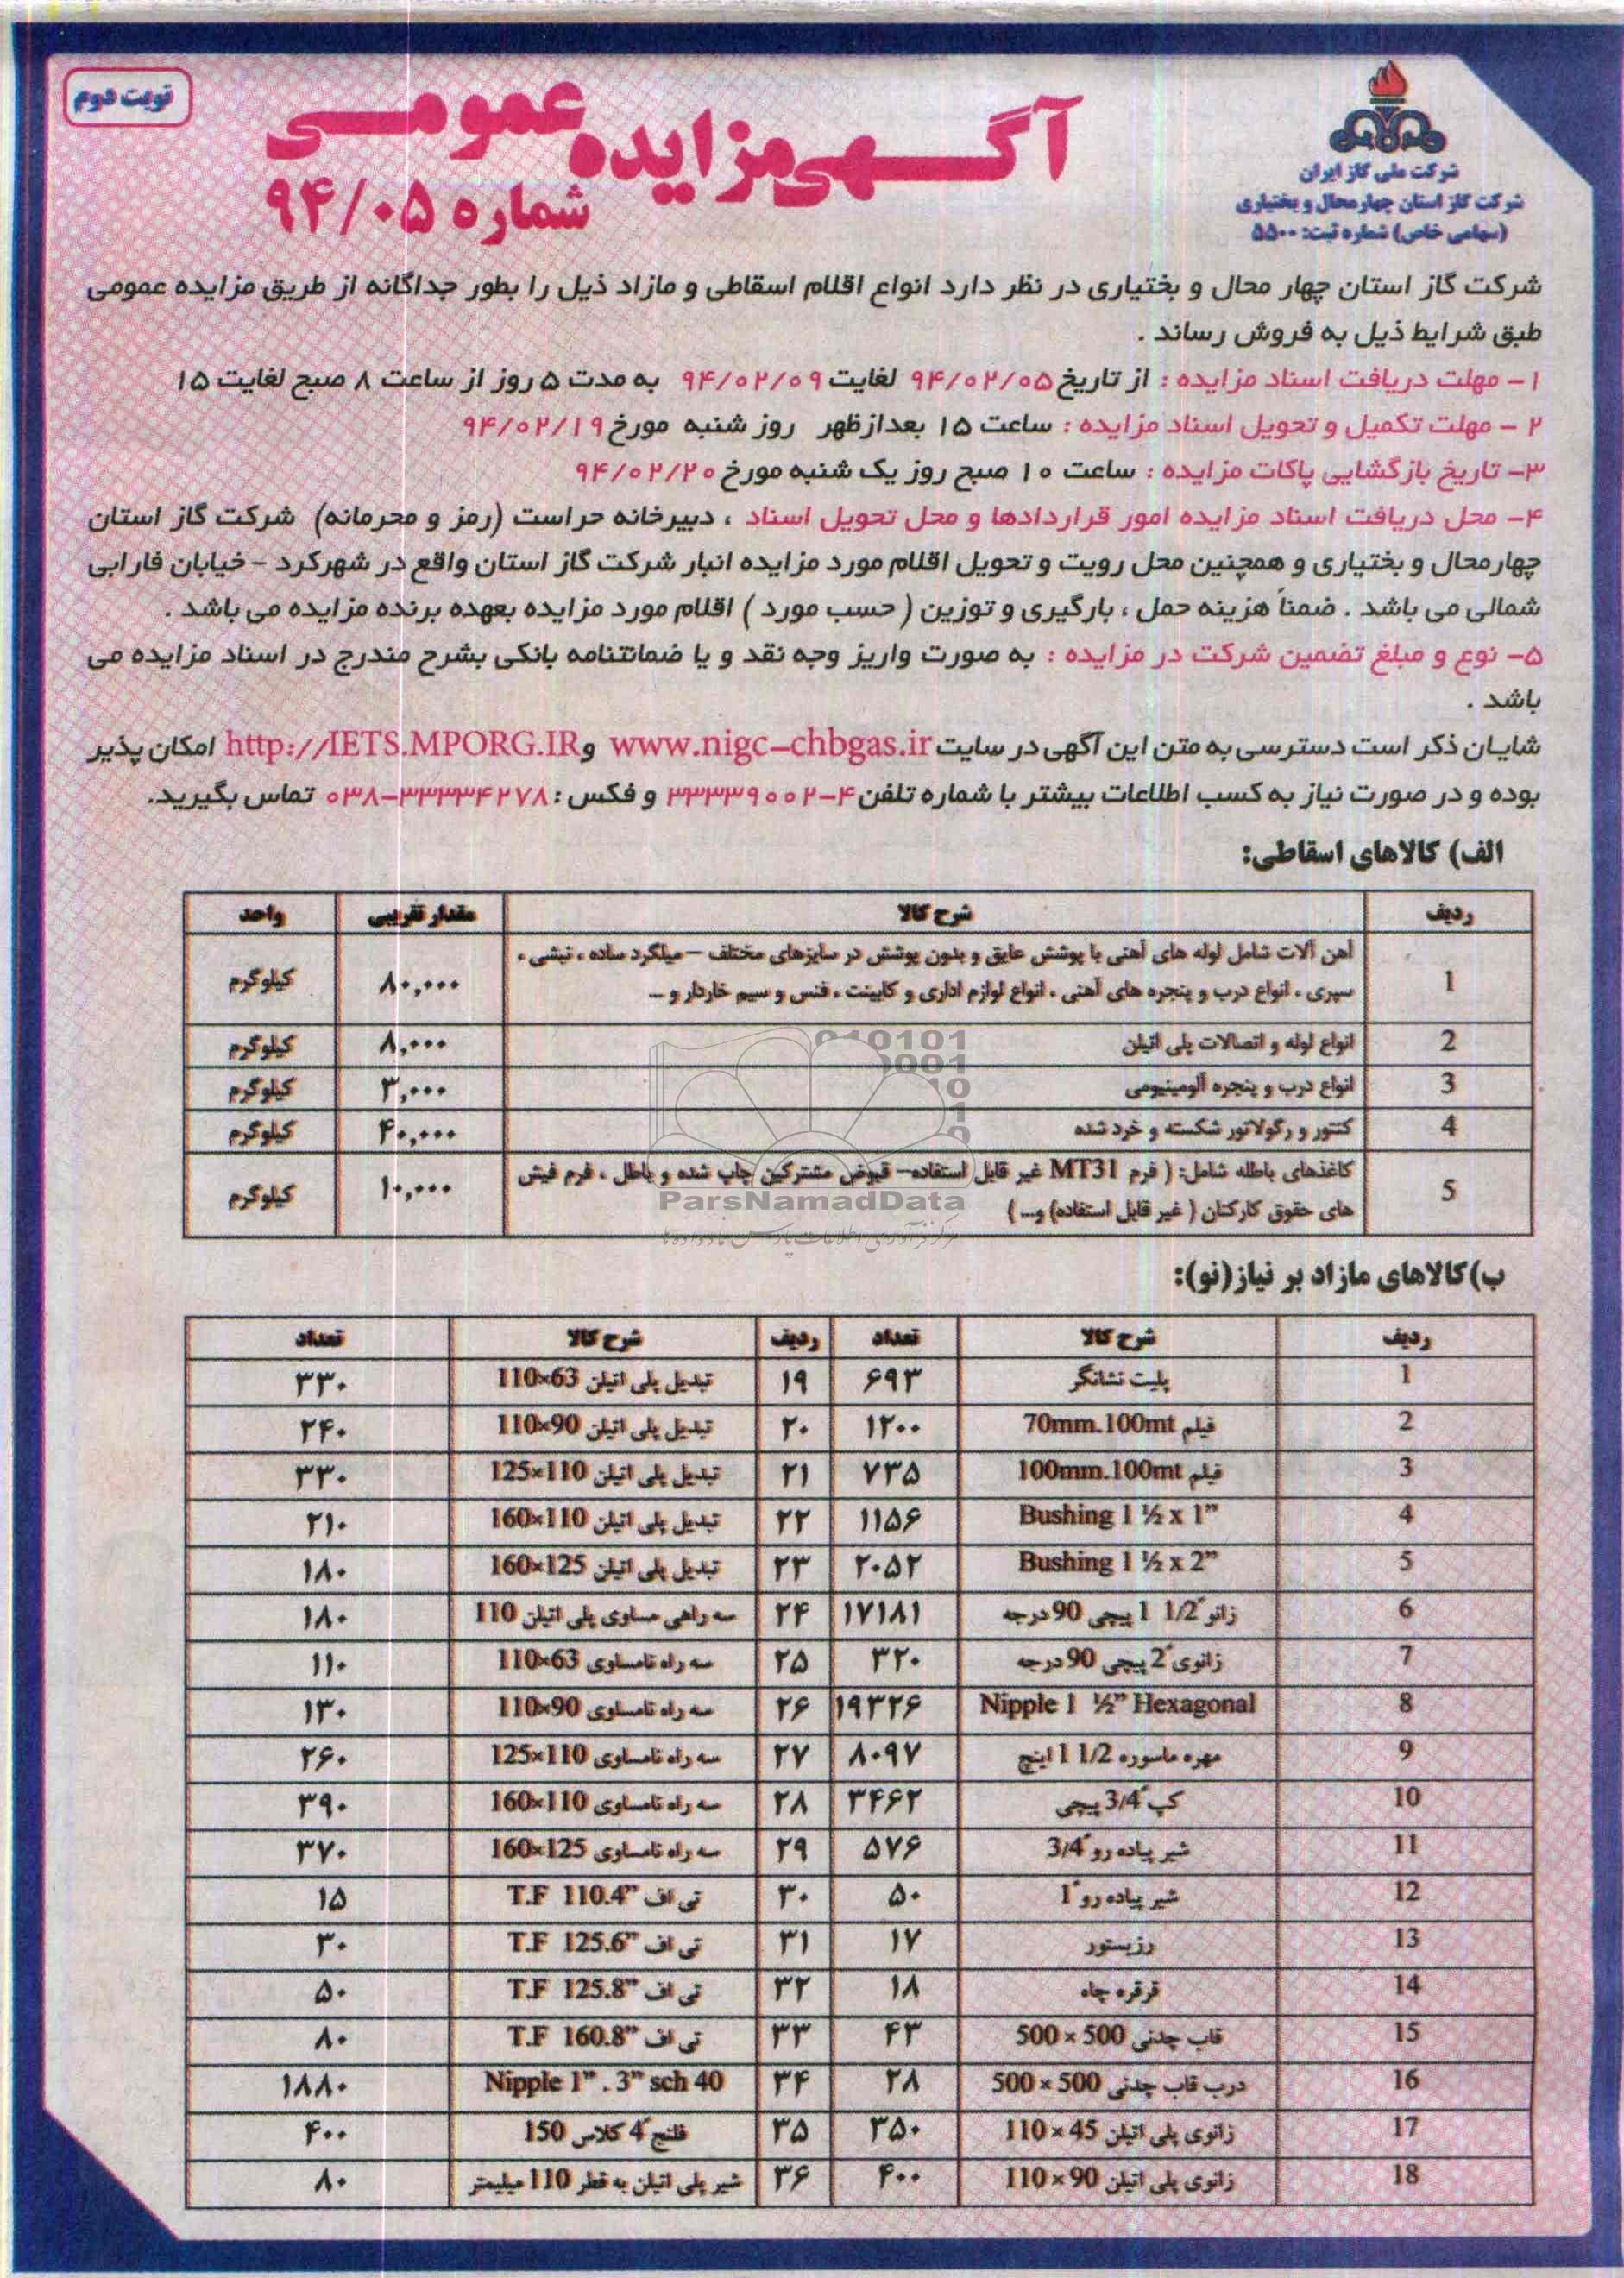 نوبت دوم
آگهی مزایده عمومی
شماره ۹۴/۰۵
شرکت ملی گاز ایران
شرکت گاز استان چهارمحال و بختیاری
(سهامی خاص) شماره ثبت: ۵۵۰۰
شرکت گاز استان چهار محال و بختیاری در نظر دارد انواع اقلام اسقاطی و مازاد ذیل را بطور جداگانه از طریق مزایده عمومی
طبق شرایط ذیل به فروش رساند .
۱- مهلت دریافت اسناد مزایده : از تاریخ ۹۴/۰۲/۰۵ لغایت ۹۴/۰۲/۰۹ به مدت ۵ روز از ساعت ۸ صبح لغایت ۱۵
۲ - مهلت تکمیل و تحویل اسناد مزایده : ساعت ۱۵ بعدازظهر روز شنبه مورخ ۹۴/۰۲/۱۹
۳- تاریخ بازگشایی پاکات مزایده : ساعت ۱۰ صبح روز یک شنبه مورخ ۹۴/۰۲/۲۰
۴- محل دریافت اسناد مزایده امور قراردادها و محل تحویل اسناد ، دبیرخانه حراست (رمز و محرمانه) شرکت گاز استان
چهارمحال و بختیاری و همچنین محل رویت و تحویل اقلام مورد مزایده انبار شرکت گاز استان واقع در شهرکرد - خیابان فارابی
شمالی می باشد . ضمناً هزینه حمل ، بارگیری و توزین ( حسب مورد ) اقلام مورد مزایده بعهده برنده مزایده می باشد .
۵- نوع و مبلغ تضمین شرکت در مزایده : به صورت واریز وجه نقد و یا ضمانتنامه بانکی بشرح مندرج در اسناد مزایده می
باشد .
شایان ذکر است دسترسی به متن این آگهی در سایت www.nigc-chbgas.ir و http://IETS.MPORG.IR امکان پذیر
بوده و در صورت نیاز به کسب اطلاعات بیشتر با شماره تلفن ۴-۳۳۳۳۹۰۰۲ و فکس : ۰۳۸-۳۳۳۳۴۲۷۸ تماس بگیرید.
الف) کالاهای اسقاطی:
ردیف شرح کالا مقدار تقریبی واحد
1 آهن آلات شامل لوله های آهنی با پوشش عایق و بدون پوشش در سایزهای مختلف - میلگرد ساده ، نبشی ،
سپری ، انواع درب و پنجره های آهنی ، انواع لوازم اداری و کابینت ، فنس و سیم خاردار و ... ۸۰,۰۰۰ کیلوگرم
2 انواع لوله و اتصالات پلی اتیلن ۸,۰۰۰ کیلوگرم
3 انواع درب و پنجره آلومینیومی ۳,۰۰۰ کیلوگرم
4 کنتور و رگولاتور شکسته و خرد شده ۴۰,۰۰۰ کیلوگرم
5 کاغذهای باطله شامل: ( فرم MT31 غیر قابل استفاده- قبوض مشترکین چاپ شده و باطل ، فرم فیش
های حقوق کارکنان ( غیر قابل استفاده) و... ) ۱۰,۰۰۰ کیلوگرم
ParsNamadData
ب)کالاهای مازاد بر نیاز(نو):
ردیف شرح کالا تعداد ردیف شرح کالا تعداد
1 پلیت نشانگر ۶۹۳ ۱۹ تبدیل پلی اتیلن 63×110 ۳۳۰
2 فیلم 70mm.100mt ۱۲۰۰ ۲۰ تبدیل پلی اتیلن 90×110 ۲۴۰
3 فیلم 100mm.100mt ۷۳۵ ۲۱ تبدیل پلی اتیلن 110×125 ۳۳۰
4 Bushing 1 ½ x 1” ۱۱۵۶ ۲۲ تبدیل پلی اتیلن 110×160 ۲۱۰
5 Bushing 1 ½ x 2” ۲۰۵۲ ۲۳ تبدیل پلی اتیلن 125×160 ۱۸۰
6 زانو 1/2" 1 پیچی 90 درجه ۱۷۱۸۱ ۲۴ سه راهی مساوی پلی اتیلن 110 ۱۸۰
7 زانوی 2" پیچی 90 درجه ۳۲۰ ۲۵ سه راه نامساوی 63×110 ۱۱۰
8 Nipple 1 ½” Hexagonal ۱۹۳۲۶ ۲۶ سه راه نامساوی 90×110 ۱۳۰
9 مهره ماسوره 1/2 1 اینچ ۸۰۹۷ ۲۷ سه راه نامساوی 110×125 ۲۶۰
10 کپ 3/4" پیچی ۳۴۶۲ ۲۸ سه راه نامساوی 110×160 ۳۹۰
11 شیر پیاده رو 3/4" ۵۷۶ ۲۹ سه راه نامساوی 125×160 ۳۷۰
12 شیر پیاده رو 1" ۵۰ ۳۰ تی اف T.F 110.4” ۱۵
13 رزیستور ۱۷ ۳۱ تی اف T.F 125.6” ۳۰
14 قرقره چاه ۱۸ ۳۲ تی اف T.F 125.8” ۵۰
15 قاب چدنی 500 × 500 ۴۳ ۳۳ تی اف T.F 160.8” ۸۰
16 درب قاب چدنی 500 × 500 ۲۸ ۳۴ Nipple 1” . 3” sch 40 ۱۸۸۰
17 زانوی پلی اتیلن 45 × 110 ۳۵۰ ۳۵ فلنج 4" کلاس 150 ۴۰۰
18 زانوی پلی اتیلن 90 × 110 ۴۰۰ ۳۶ شیر پلی اتیلن به قطر 110 میلیمتر ۸۰